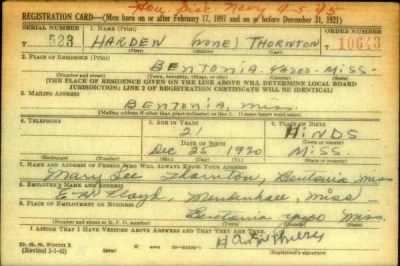 Hon. Disc. Navy 9-5-45
REGISTRATION CARD—(Men born on or after February 17, 1897 and on or before December 31, 1921)
SERIAL NUMBER
1. NAME (Print)
ORDER NUMBER
T 523
HARDEN (NONE) THORNTON
10643
2. PLACE OF RESIDENCE (Print)
BENTONIA YAZOO MISS.
(Number and street) (Town, township, village, or city) (County) (State)
[THE PLACE OF RESIDENCE GIVEN ON THE LINE ABOVE WILL DETERMINE LOCAL BOARD
JURISDICTION; LINE 2 OF REGISTRATION CERTIFICATE WILL BE IDENTICAL]
3. MAILING ADDRESS
BENTONIA, MISS.
4. TELEPHONE
5. AGE IN YEARS
6. PLACE OF BIRTH
21
HINDS
DATE OF BIRTH
Dec 25 1920
MISS
7. NAME AND ADDRESS OF PERSON WHO WILL ALWAYS KNOW YOUR ADDRESS
Mary Lee Thornton, Bentonia Miss
8. EMPLOYER'S NAME AND ADDRESS
Floyd Mendenhall, Miss
9. PLACE OF EMPLOYMENT OR BUSINESS
Bentonia Yazoo Miss.
(Number and street or R. F. D. number) (Town) (County) (State)
I AFFIRM THAT I HAVE VERIFIED ABOVE ANSWERS AND THAT THEY ARE TRUE.
D. S. S. Form 1
(Revised
(Registrant's signature)